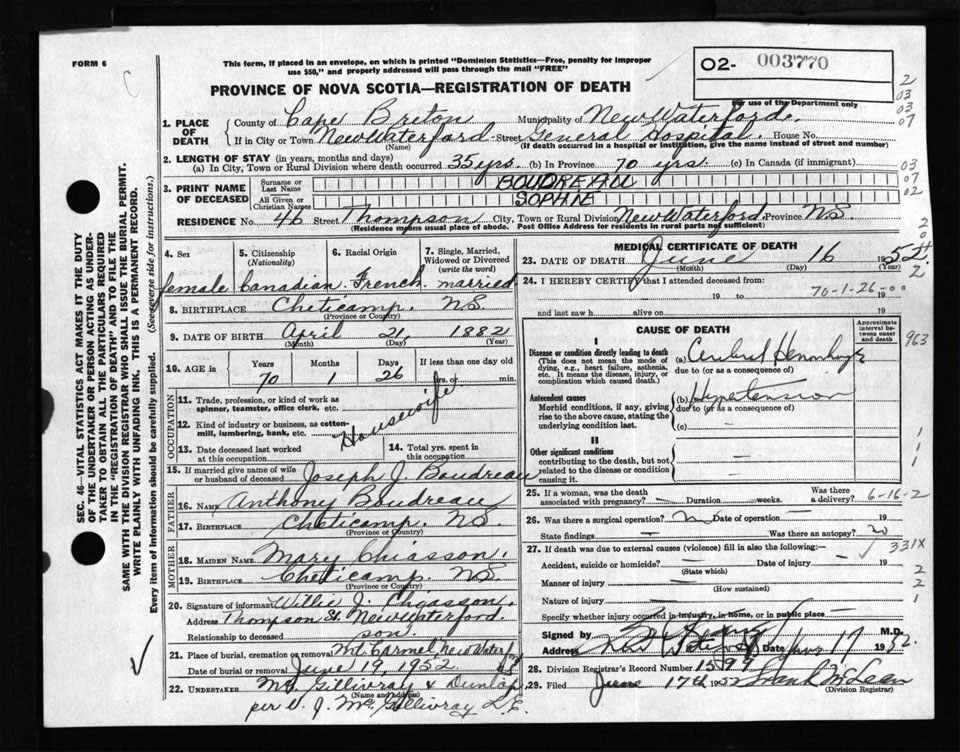 FORM 6
C
This form, if placed in an envelope, on which is printed "Dominion Statistics—Free, penalty for improper
use $50," and properly addressed will pass through the mail "FREE"
O2- 003770
For use of the Department only
PROVINCE OF NOVA SCOTIA—REGISTRATION OF DEATH
2
03
03
07
1. PLACE OF DEATH
County of Cape Breton Municipality of New Waterford.
If in City or Town New Waterford Street General Hospital. House No.
(Name) (If death occurred in a hospital or institution, give the name instead of street and number)
2. LENGTH OF STAY (in years, months and days)
(a) In City, Town or Rural Division where death occurred 35 yrs. (b) In Province 70 yrs (c) In Canada (if immigrant)
03
07
02
3. PRINT NAME OF DECEASED
Surname or Last Name BOUDREAU
All Given or Christian Names SOPHIE
RESIDENCE No. 46 Street Thompson City, Town or Rural Division New Waterford Province N.S.
(Residence means usual place of abode. Post Office Address for residents in rural parts not sufficient)
4. Sex 5. Citizenship (Nationality) 6. Racial Origin 7. Single, Married, Widowed or Divorced (write the word)
female Canadian. French. married
8. BIRTHPLACE Cheticamp. N.S.
(Province or Country)
9. DATE OF BIRTH April 21, 1882
(Month) (Day) (Year)
10. AGE in Years Months Days If less than one day old
70 1 26 hrs. or min.
OCCUPATION
11. Trade, profession, or kind of work as
spinner, teamster, office clerk, etc.
Housewife
12. Kind of industry or business, as cotton-
mill, lumbering, bank, etc.
13. Date deceased last worked at this occupation
14. Total yrs. spent in this occupation
15. If married give name of wife or husband of deceased Joseph J. Boudreau
FATHER
16. NAME Anthony Boudreau
17. BIRTHPLACE Cheticamp. N.S.
(Province or Country)
MOTHER
18. MAIDEN NAME Mary Chiasson.
19. BIRTHPLACE Cheticamp. N.S.
(Province or Country)
20. Signature of informant Willie J. Chiasson.
Address Thompson St. New Waterford.
Relationship to deceased son.
21. Place of burial, cremation or removal Mt. Carmel, New Waterford
Date of burial or removal June 19, 1952. N.S.
22. UNDERTAKER Mc Gillivray & Dunlop,
(Name and address)
per D. J. Mc Gillivray L.E.
MEDICAL CERTIFICATE OF DEATH
23. DATE OF DEATH June 16 1952.
(Month) (Day) (Year)
24. I HEREBY CERTIFY that I attended deceased from:
19 to 70-1-26-00 19
and last saw h alive on 19
CAUSE OF DEATH
Approximate interval between onset and death
963
I
Disease or condition directly leading to death
(This does not mean the mode of dying, e.g., heart failure, asthenia, etc. It means the disease, injury, or complication which caused death.)
(a) Cerebral Hemorrhage
due to (or as a consequence of)
Antecedent causes
Morbid conditions, if any, giving rise to the above cause, stating the underlying condition last.
(b) Hypertension
due to (or as a consequence of)
(c) —
II
Other significant conditions
contributing to the death, but not related to the disease or condition causing it.
1
1
25. If a woman, was the death associated with pregnancy? — Duration — weeks. Was there a delivery? 6-16-2
26. Was there a surgical operation? no Date of operation — 19
State findings — Was there an autopsy? no
27. If death was due to external causes (violence) fill in also the following:—
331X
Accident, suicide or homicide? — Date of injury 19
(State which)
2
Manner of injury —
(How sustained)
2
Nature of injury —
1
Specify whether injury occurred in industry, in home, or in public place —
Signed by M.D.
Address Date June 17 1952.
28. Division Registrar's Record Number 1599
29. Filed June 17th 1952 Frank McLean
(Division Registrar)
SEC. 46—VITAL STATISTICS ACT MAKES IT THE DUTY
OF THE UNDERTAKER OR PERSON ACTING AS UNDER-
TAKER TO OBTAIN ALL THE PARTICULARS REQUIRED
IN THE "REGISTRATION OF DEATH" AND TO FILE THE
SAME WITH THE DIVISION REGISTRAR WHO SHALL ISSUE THE BURIAL PERMIT.
WRITE PLAINLY WITH UNFADING INK. THIS IS A PERMANENT RECORD.
Every item of information should be carefully supplied. (See reverse side for instructions.)